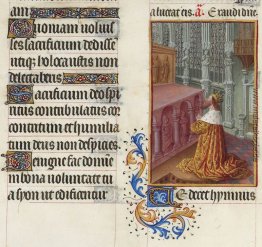 Quoniam si voluis
ses sacrificium dedisse
utique holocaustis non
delectaberis
Sacrificium deo spi
ritus contribulatus cor
contritum et humilia
tum deus non despicies
Benigne fac domine
in bona voluntate tu
a syon ut edificent
luceat eis. a. Exaudi dne
Te decet hymnus